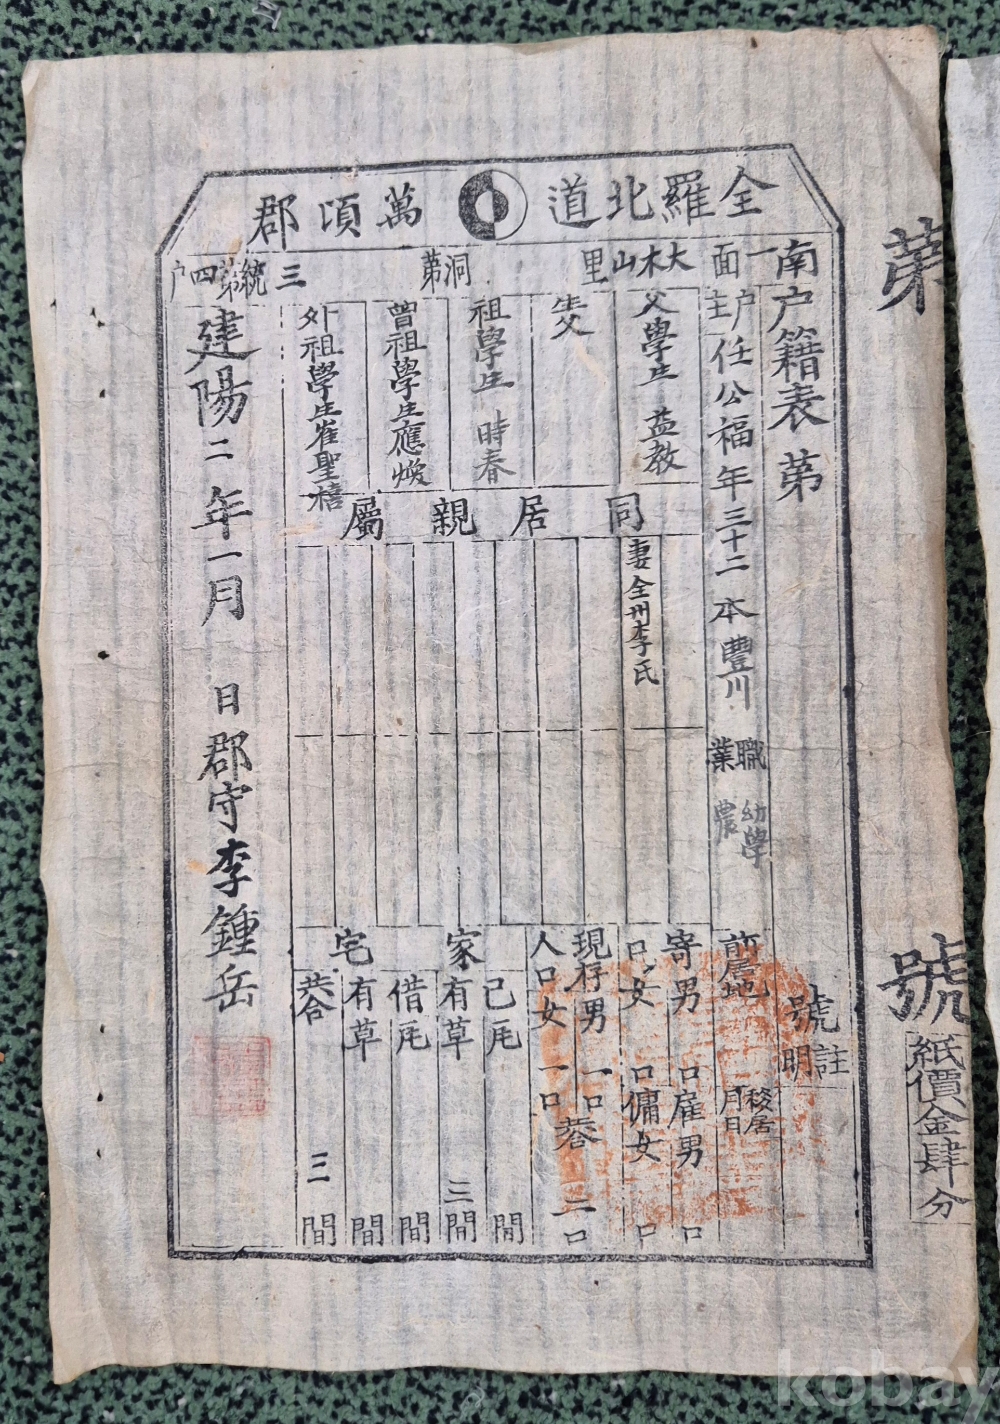 全羅北道 萬頃郡
南一面 大木山里 洞第 三統第四户
户籍表 第 號
註明
户主 任公福 年三十二 本豐川 職業 幼學 農
前居地
移居月日
父學生 益教
生父
祖學生 時春
曾祖學生應煥
外祖學生崔聖禧
同居親屬
妻全州李氏
寄男 口 雇男 口
口女 口傭女 口
現存男 一口
人口女 一口 共合 二口
家宅
己瓦 間
有草 三間
借瓦 間
有草 間
共合 三間
建陽二年一月 日 郡守李鍾岳
第 號
紙價金肆分
kobay